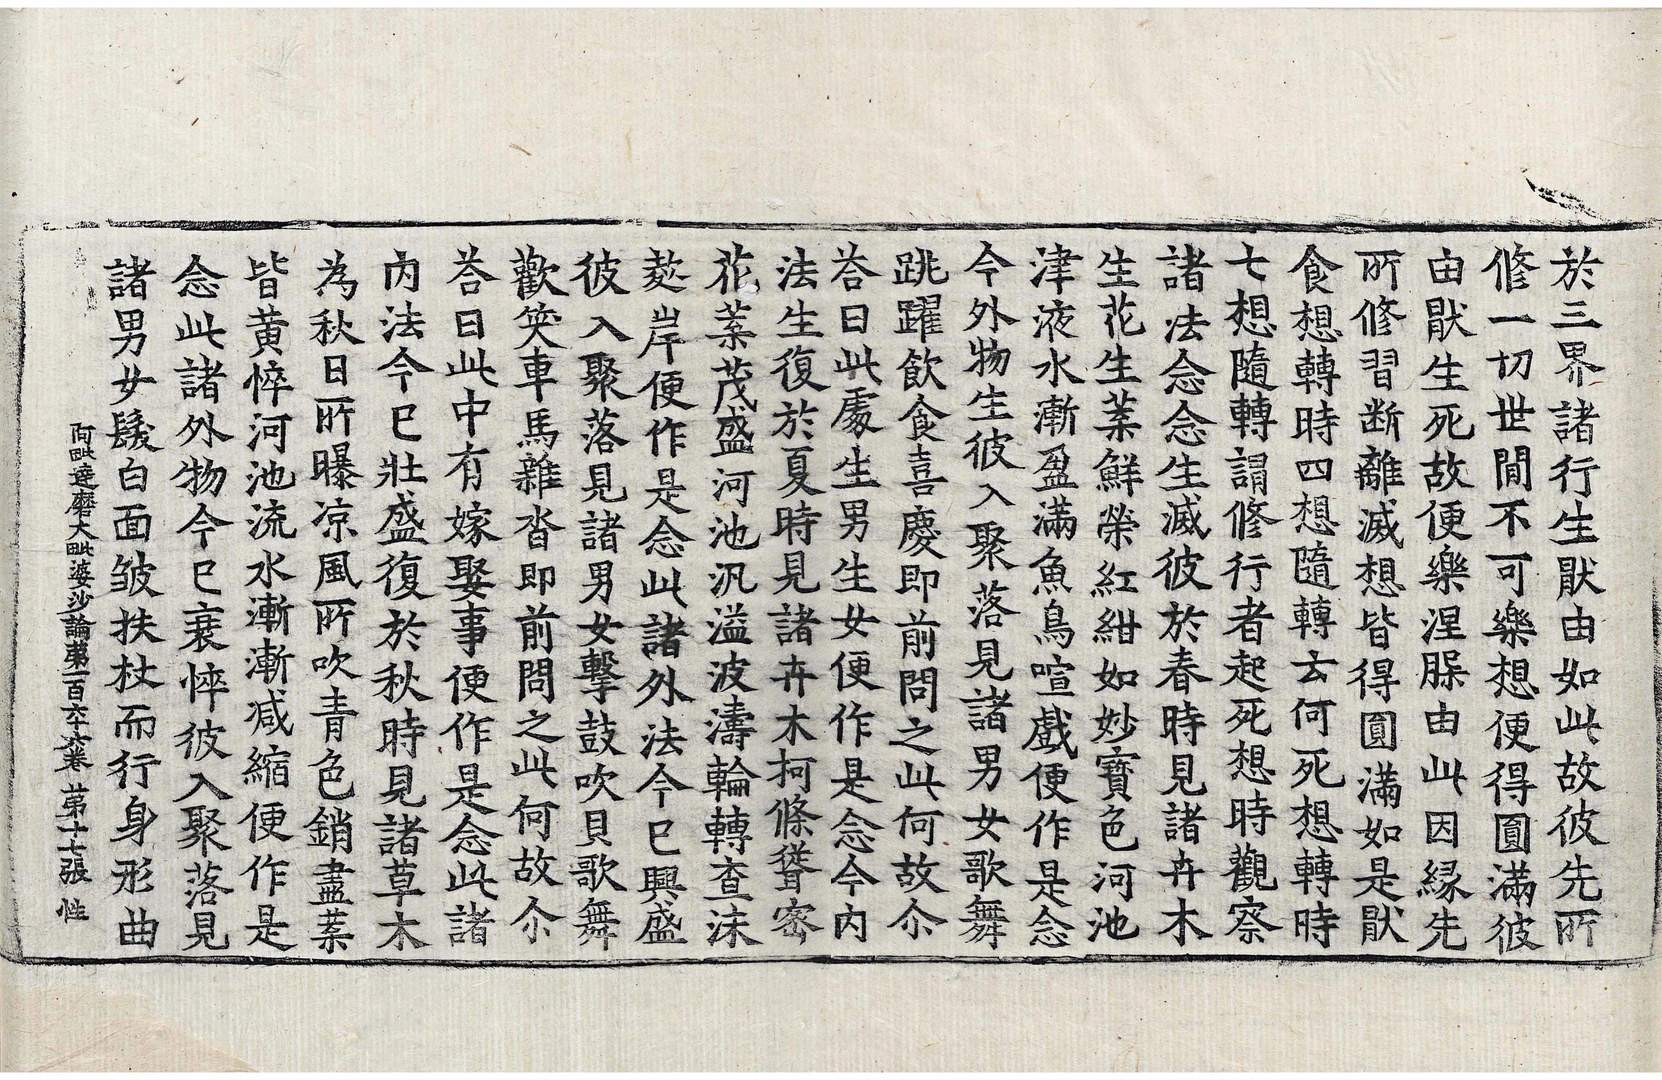 於三界諸行生猒由如此故彼先所
修一切世間不可樂想便得圓滿彼
由猒生死故便樂涅槃由此因緣先
所修習断離滅想皆得圓滿如是猒
食想轉時四想隨轉云何死想轉時
七想隨轉謂修行者起死想時觀察
諸法念念生滅彼於春時見諸卉木
生花生葉鮮榮紅紺如妙寶色河池
津液水漸盈滿魚鳥喧戲便作是念
今外物生彼入聚落見諸男女歌舞
跳躍飲食喜慶即前問之此何故尒
荅曰此處生男生女便作是念今内
法生復於夏時見諸卉木柯條聳密
花葉茂盛河池汎溢波濤輪轉查沫
㷼岸便作是念此諸外法今已興盛
彼入聚落見諸男女擊鼓吹貝歌舞
歡笑車馬雜沓即前問之此何故尒
荅曰此中有嫁娶事便作是念此諸
内法今已壯盛復於秋時見諸草木
為秋日所曝凉風所吹青色銷盡葉
皆黄悴河池流水漸漸减縮便作是
念此諸外物今已衰悴彼入聚落見
諸男女髮白面皱扶杖而行身形曲
阿毗達磨大毗婆沙論苐一百六十六卷 苐十七張 性